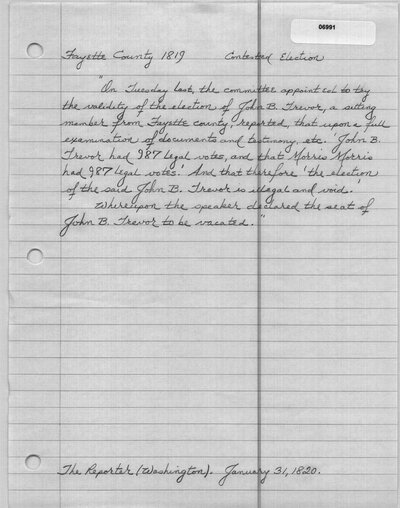 06991
Fayette County 1819 Contested Election
"On Tuesday last, the committee appointed to try
the validity of the election of John B. Trevor, a sitting
member from Fayette county, reported, that upon a full
examination of documents and testimony, etc. John B.
Trevor had 987 legal votes, and that Morris Morris
had 987 legal votes.' And that therefore 'the election
of the said John B. Trevor is illagal and void.'
Whereupon the speaker declared the seat of
John B. Trevor to be vacated."
The Reporter (Washington). January 31, 1820.